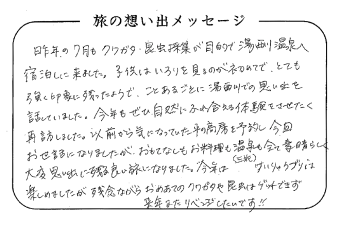 旅の想い出メッセージ
昨年の7月もクワガタ・昆虫採集が目的で湯西川温泉へ
宿泊しに来ました。子供はいろりを見るのが初めてで、とても
強く印象に残ったようで、ことあるごとに湯西川での思い出を
話していました。今年もぜひ自然にふれ合える体験をさせたく
再訪しました。以前から気になっていた平の高房を予約し今回
お世話になりましたが、おもてなしもお料理も温泉も全て素晴らしく
大変思い出に残る良い旅になりました。今年は
楽しめましたが残念ながらおめあてのクワガタや昆虫はゲットできず
来年またリベンジしたいです!!